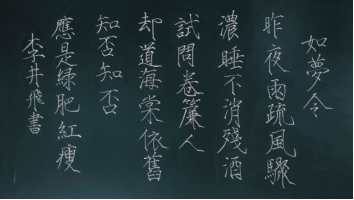 如夢令
昨夜雨疏風驟
濃睡不消殘酒
試問卷簾人
却道海棠依舊
知否知否
應是绿肥紅瘦
李井飛書